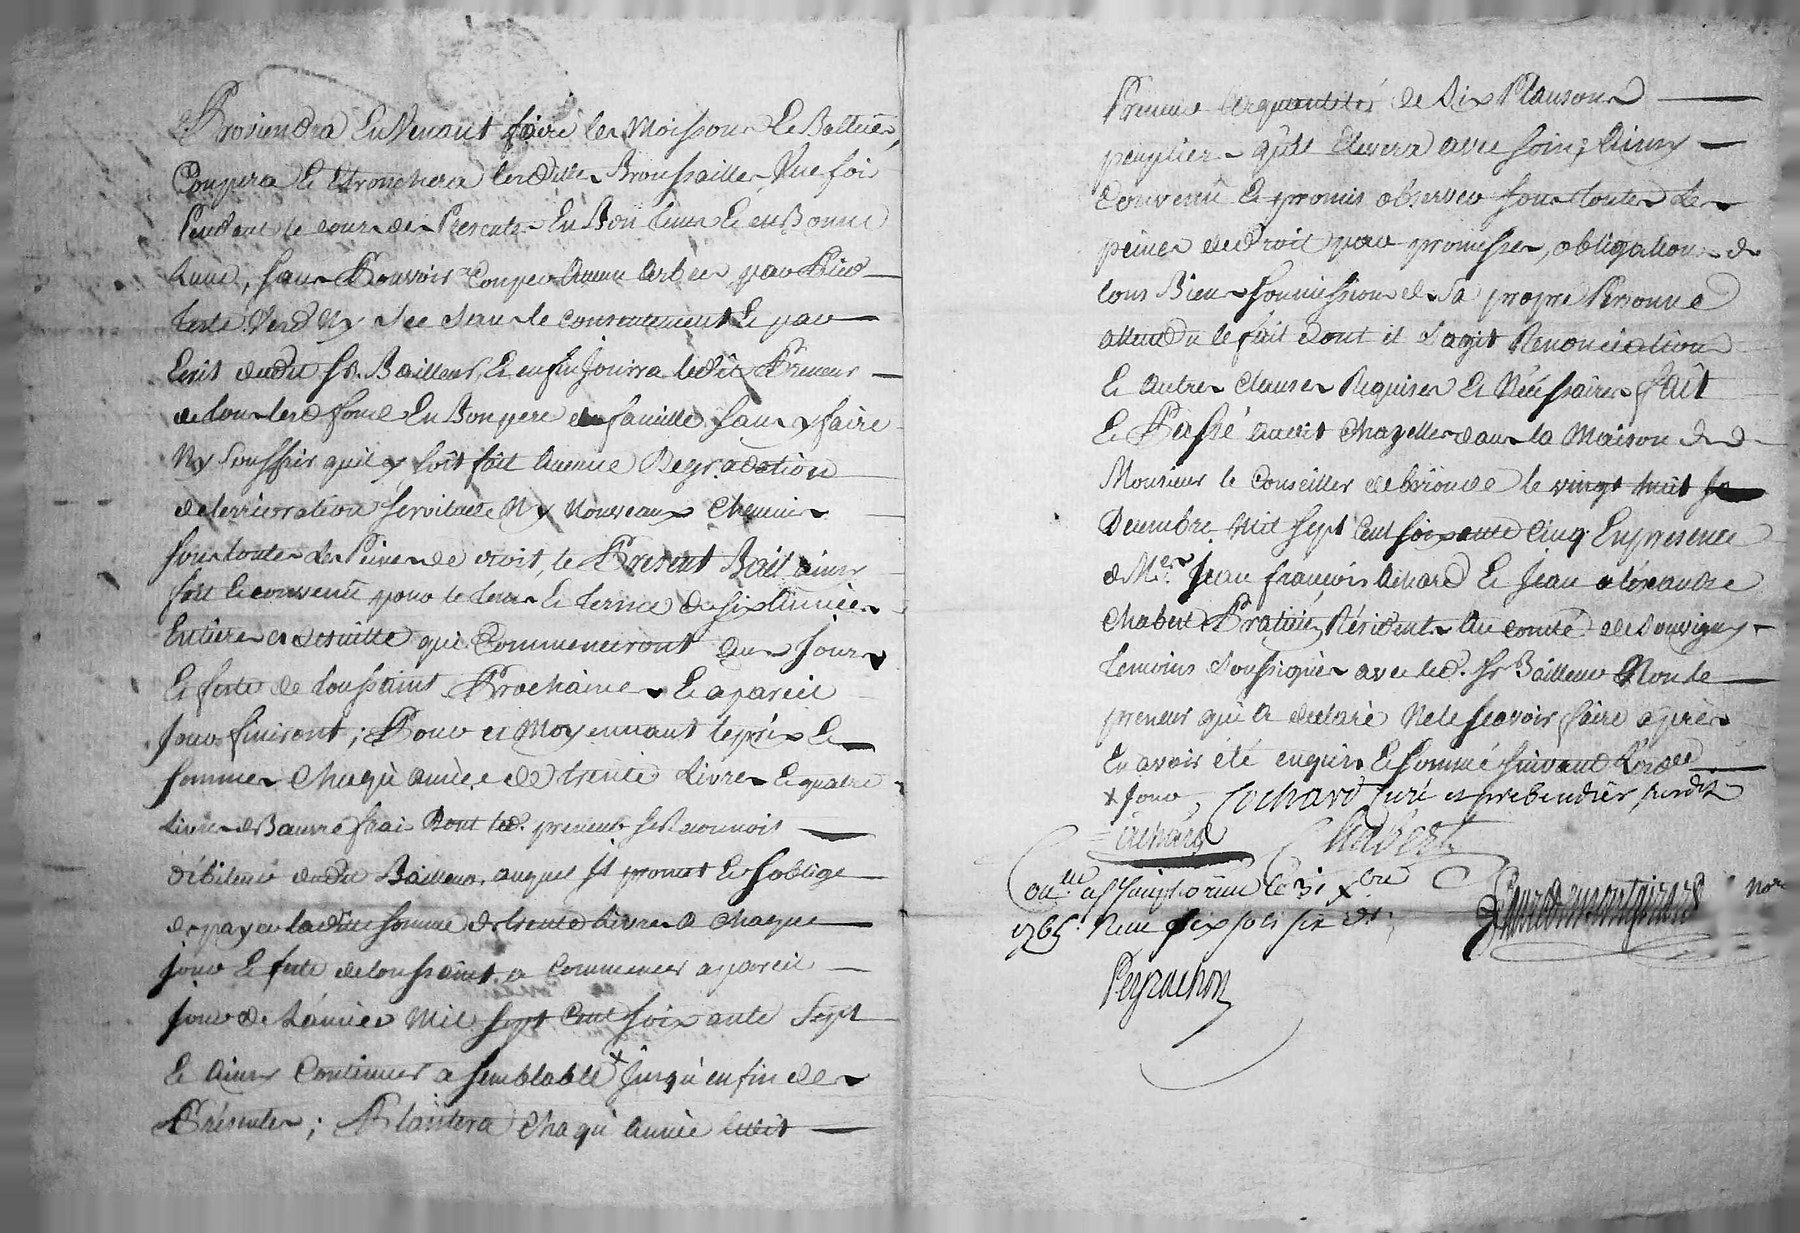 Proviendra En Venant faire les Moissons Et Battües,
Coupera Et Etronchera lesdittes Broussailles Une fois
Pendant le cours des Presentes En Bon tems Et en Bonne
Lune, sans Pouvoir Couper Aucun Arbre par Pied
teste Verd Ny Sec sans le consentement Et par
Ecrit dudit Sr. Bailleur, Et enfin Jouira ledit Preneur
de tous lesd fonds En Bon pere de famille sans y faire
Ny Souffrir quil y soit fait Aucune Degradation
deterrioration servitude Ny Nouveaux Chemins
sous toutes les Peines de droit, le Present Bail ainsy
fait Et convenu pour le tems Et terme de six Années
Entieres et desuitte qui Commenceront Aux Jour
Et feste de toussaint Prochaine Et a pareil
Jour finiront; Pour et Moyennant le prix Et
somme Chaque année de trente Livres Et quatre
Livres de Beurre frai Dont led. preneur se Reconnoit
débiteur dudit Bailleur, auquel Il promet Et soblige
de payer laditte somme de trente Livres A Chaque
jour Et feste de toussaint, a Commencer a pareil
jour de L'année Mil sept Cent soixante Sept
Et Ainsy Continuer a semblable x Jusqu'en fin des
Présentes; Plantera Chaque Année Ledit
Preneur La quantité de Six Plansons
peuplier qu'il Elevera avec soin; Ainsy
Convenu Et promis observer sous toutes Les
peines de droit par promesses, obligations de
tous Biens soumission de Sa propre Personne
attendu le fait dont il s'agit Renonciation
Et Autres Clauses Requises Et Nécessaires fait
Et Passé audit Chazelles dans la Maison de
Monsieur le Conseiller de brioude le vingt huit
Decembre Mil sept Cent soixante Cinq En presence
de Mes. Jean françois Achard Et Jean alexandre
Chabert Praticien Résidents Au comté de Souvigny
temoins Soussignés avec led. Sr Bailleur Non le
preneur qui a declaré Ne le scavoir faire après
En avoir été enquis Et sommé suivant L'ordce
x Jour, Cochard Curé et prebendier susdit
Achard Chabert
Conlle a St Simphorien le 31 xbre
1765. Reçu six sols six ds.
Peyrachon